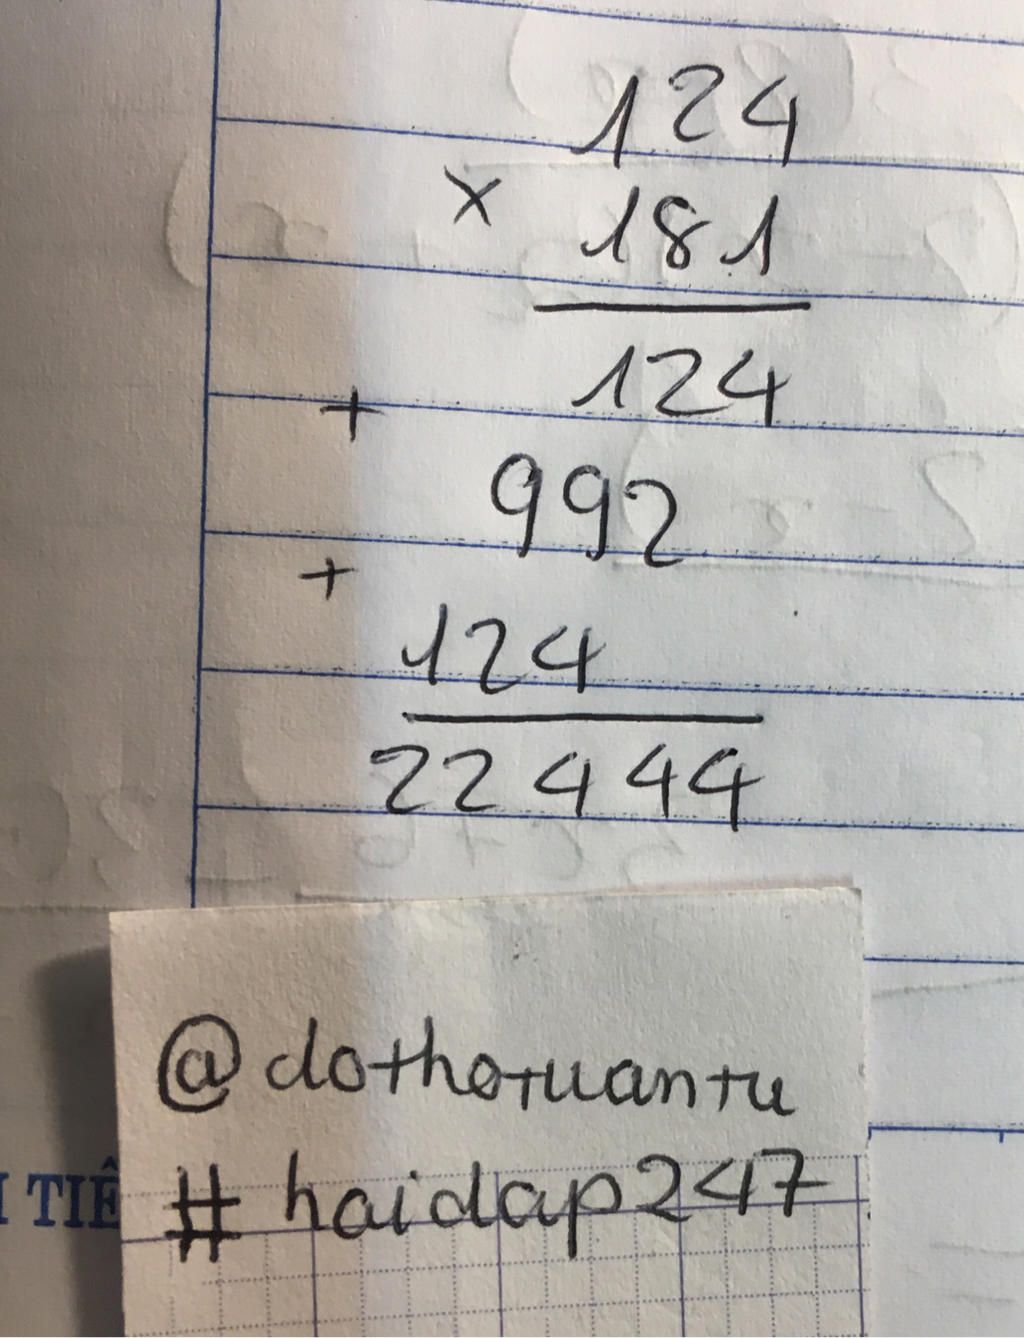 124
× 181
124
+
992
+
124
22444
@dothotuantu
# haidap247
I TIÊ